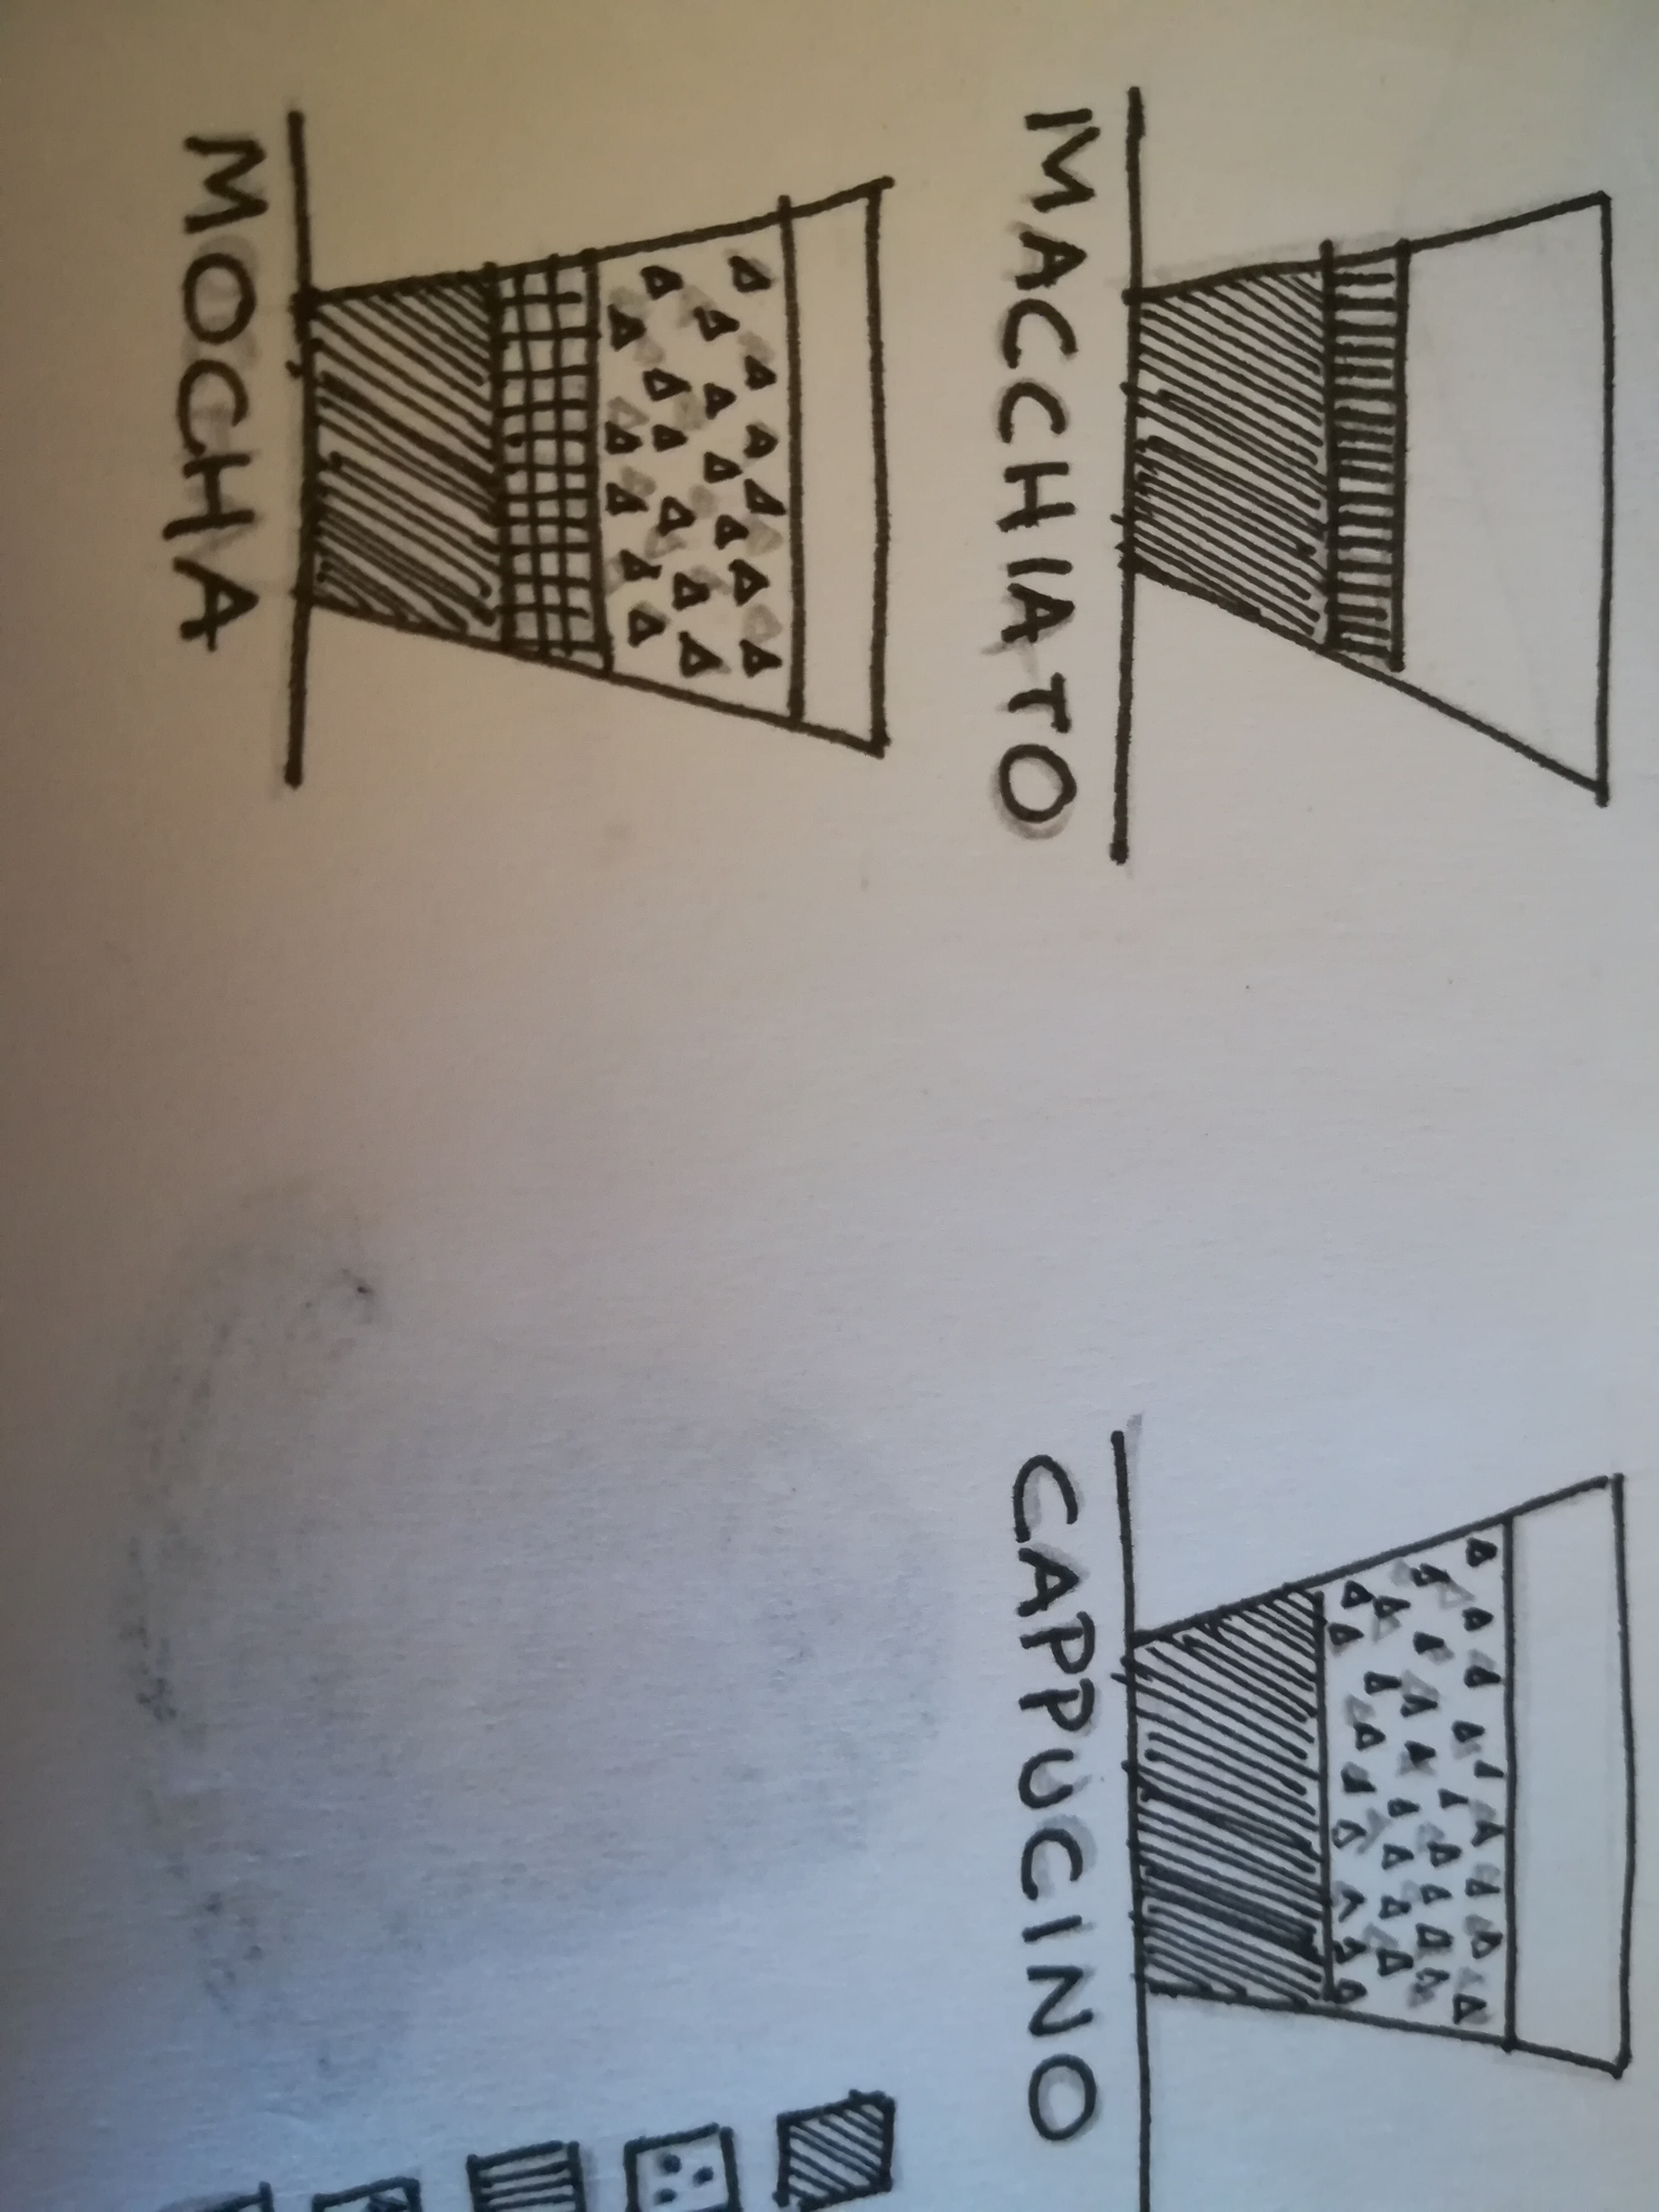 MACCHIATO
CAPPUCINO
MOCHA